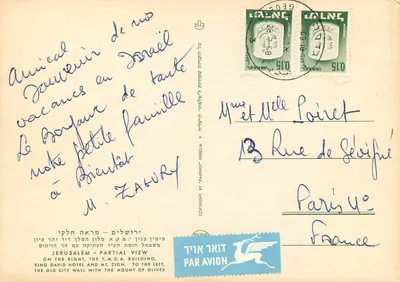 Amical
Souvenir de nos
vacances en Israël
Le Bonjour de toute
notre petite famille
à Bientôt
M. ZAOURY
ירושלים - מראה חלקי
JERUSALEM - PARTIAL VIEW
ON THE RIGHT, THE Y.M.C.A. BUILDING,
KING DAVID HOTEL AND MT. ZION, TO THE LEFT,
THE OLD CITY WALL WITH THE MOUNT OF OLIVES
COPYRIGHT BY "PALPHOT" HERZLIA
ישראל
0.15
ישראל
0.15
Mme et Mlle Loiret
13 Rue de Sévigné
Paris 4e
France
דואר אויר
PAR AVION